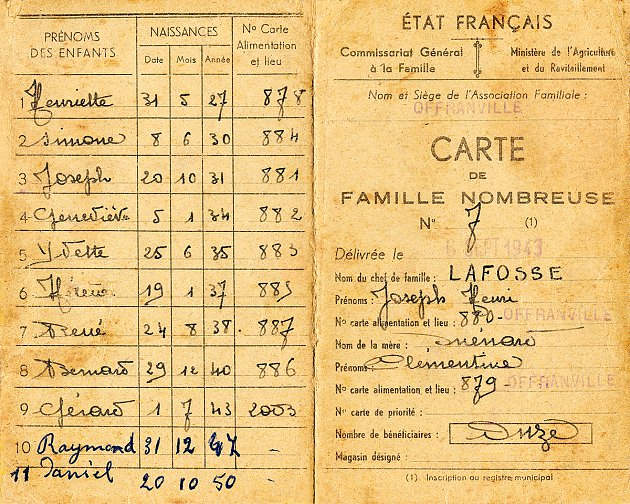 PRÉNOMS DES ENFANTS NAISSANCES Nº Carte Alimentation et lieu
Date Mois Année
1 Henriette 31 5 27 878
2 Simone 8 6 30 884
3 Joseph 20 10 31 881
4 Geneviève 5 1 34 882
5 Yvette 25 6 35 883
6 19 1 37 885
7 René 24 8 38 887
8 Bernard 29 12 40 886
9 Gérard 1 7 43 2003
10 Raymond 31 12 47 -
11 Daniel 20 10 50 -
ÉTAT FRANÇAIS
Commissariat Général à la Famille
Ministère de l'Agriculture et du Ravitaillement
Nom et Siège de l'Association Familiale :
OFFRANVILLE
CARTE
DE
FAMILLE NOMBREUSE
Nº 7 (1)
Délivrée le 1943
Nom du chef de famille : LAFOSSE
Prénoms : Joseph Henri
Nº carte alimentation et lieu : 880- OFFRANVILLE
Nom de la mère :
Prénoms : Clémentine
Nº carte alimentation et lieu : 879- OFFRANVILLE
Nº carte de priorité :
Nombre de bénéficiaires : Onze
Magasin désigné :
(1) Inscription au registre municipal